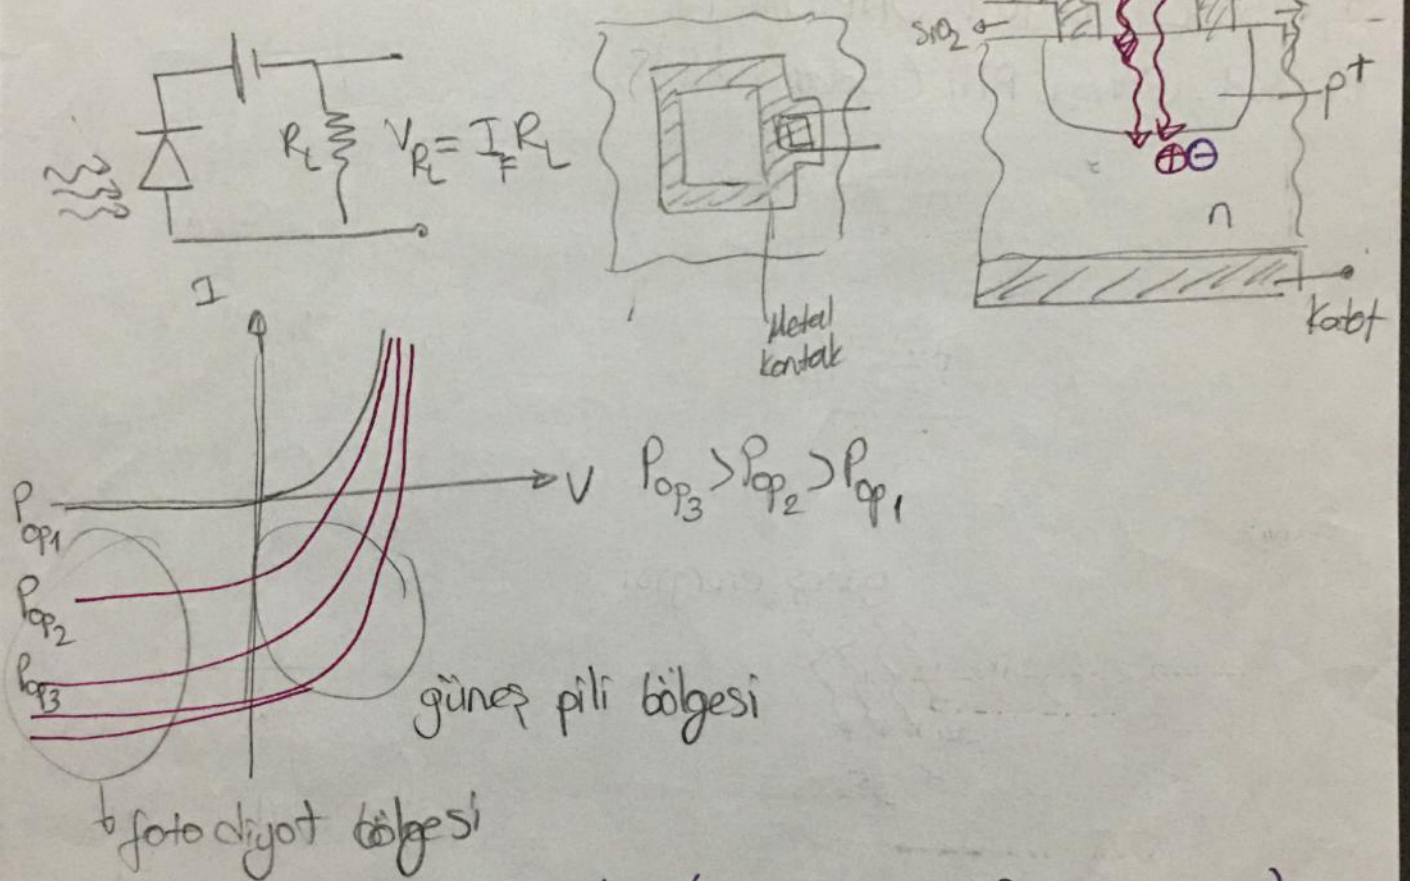 SiO₂
p⁺
R_L V_{R_L} = I_F R_L
⊕⊖
n
Metal
kontak
Katot
I
V
P_{op₁}
P_{op₃} > P_{op₂} > P_{op₁}
P_{op₂}
P_{op₃}
güneş pili bölgesi
foto diyot bölgesi